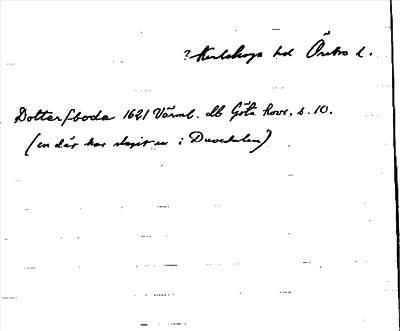 ? Karlskoga hd Örebro l.
Dotterfboda 1621 Värml. db Göta hovr. s. 10.
(en där har slagit en i Duvedalen)